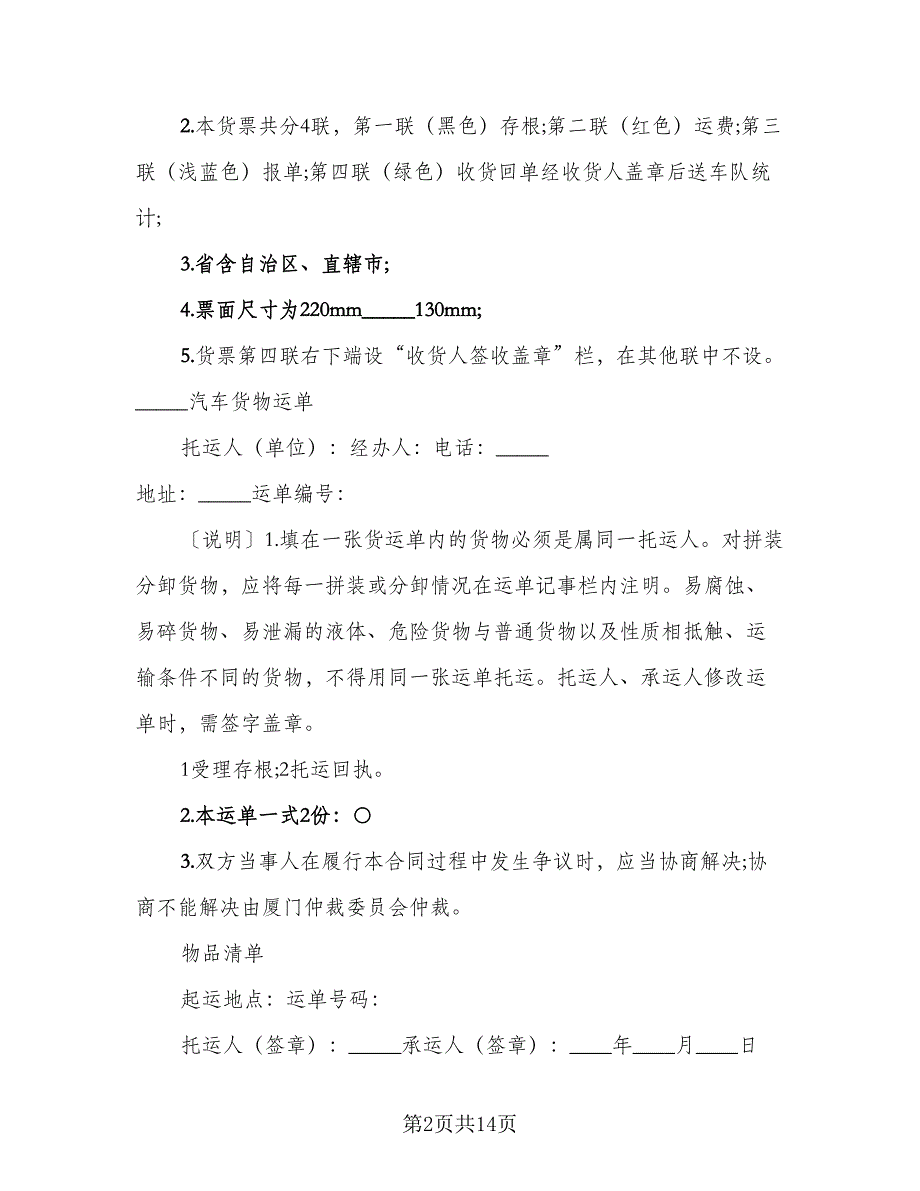 2.本货票共分4联，第一联（黑色）存根;第二联（红色）运费;第三
联（浅蓝色）报单;第四联（绿色）收货回单经收货人盖章后送车队统
计;
3.省含自治区、直辖市;
4.票面尺寸为220mm_____130mm;
5.货票第四联右下端设“收货人签收盖章”栏，在其他联中不设。
_____汽车货物运单
托运人（单位）：经办人：电话：_____
地址：_____运单编号：
〔说明〕1.填在一张货运单内的货物必须是属同一托运人。对拼装
分卸货物，应将每一拼装或分卸情况在运单记事栏内注明。易腐蚀、
易碎货物、易泄漏的液体、危险货物与普通货物以及性质相抵触、运
输条件不同的货物，不得用同一张运单托运。托运人、承运人修改运
单时，需签字盖章。
1受理存根;2托运回执。
2.本运单一式2份：○
3.双方当事人在履行本合同过程中发生争议时，应当协商解决;协
商不能解决由厦门仲裁委员会仲裁。
物品清单
起运地点：运单号码：
托运人（签章）：_____承运人（签章）：____年____月____日
第2页共14页